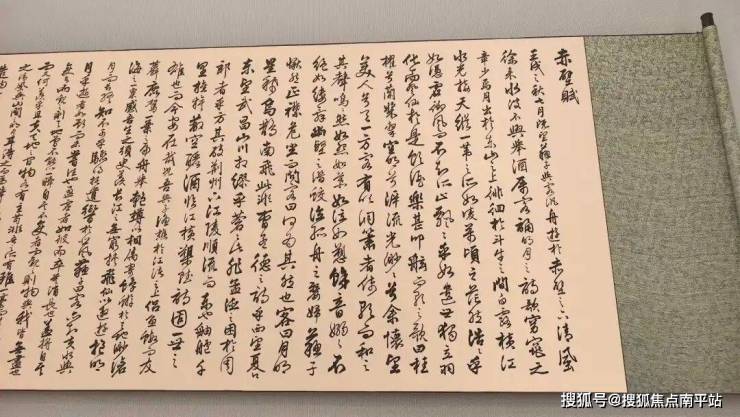 赤壁賦
壬戌之秋七月既望蘇子與客泛舟遊於赤壁之下清風
徐來水波不興舉酒屬客誦明月之詩歌窈窕之
章少焉月出於東山之上徘徊於斗牛之間白露橫江
水光接天縱一葦之所如凌萬頃之茫然浩浩乎
如馮虛御風而不知其所止飄飄乎如遺世獨立羽
化而登仙於是飲酒樂甚扣舷而歌之歌曰桂
棹兮蘭槳擊空明兮泝流光渺渺兮余懷望
美人兮天一方客有吹洞簫者倚歌而和之
其聲嗚嗚然如怨如慕如泣如訴餘音嫋嫋不
絕如縷舞幽壑之潛蛟泣孤舟之嫠婦蘇子
愀然正襟危坐而問客曰何為其然也客曰月明
星稀烏鵲南飛此非曹孟德之詩乎西望夏口
東望武昌山川相繆鬱乎蒼蒼此非孟德之困於周
郎者乎方其破荊州下江陵順流而東也舳艫千
里旌旗蔽空釃酒臨江橫槊賦詩固一世之
雄也而今安在哉況吾與子漁樵於江渚之上侶魚蝦而友
麋鹿駕一葉之扁舟舉匏樽以相屬寄蜉蝣於天地渺滄
海之一粟哀吾生之須臾羨長江之無窮挾飛仙以遨遊抱明
月而長終知不可乎驟得託遺響於悲風蘇子曰客亦知夫水與
月乎逝者如斯而未嘗往也盈虛者如彼而卒莫消長也蓋將自其
搜狐号@搜狐焦点南平站